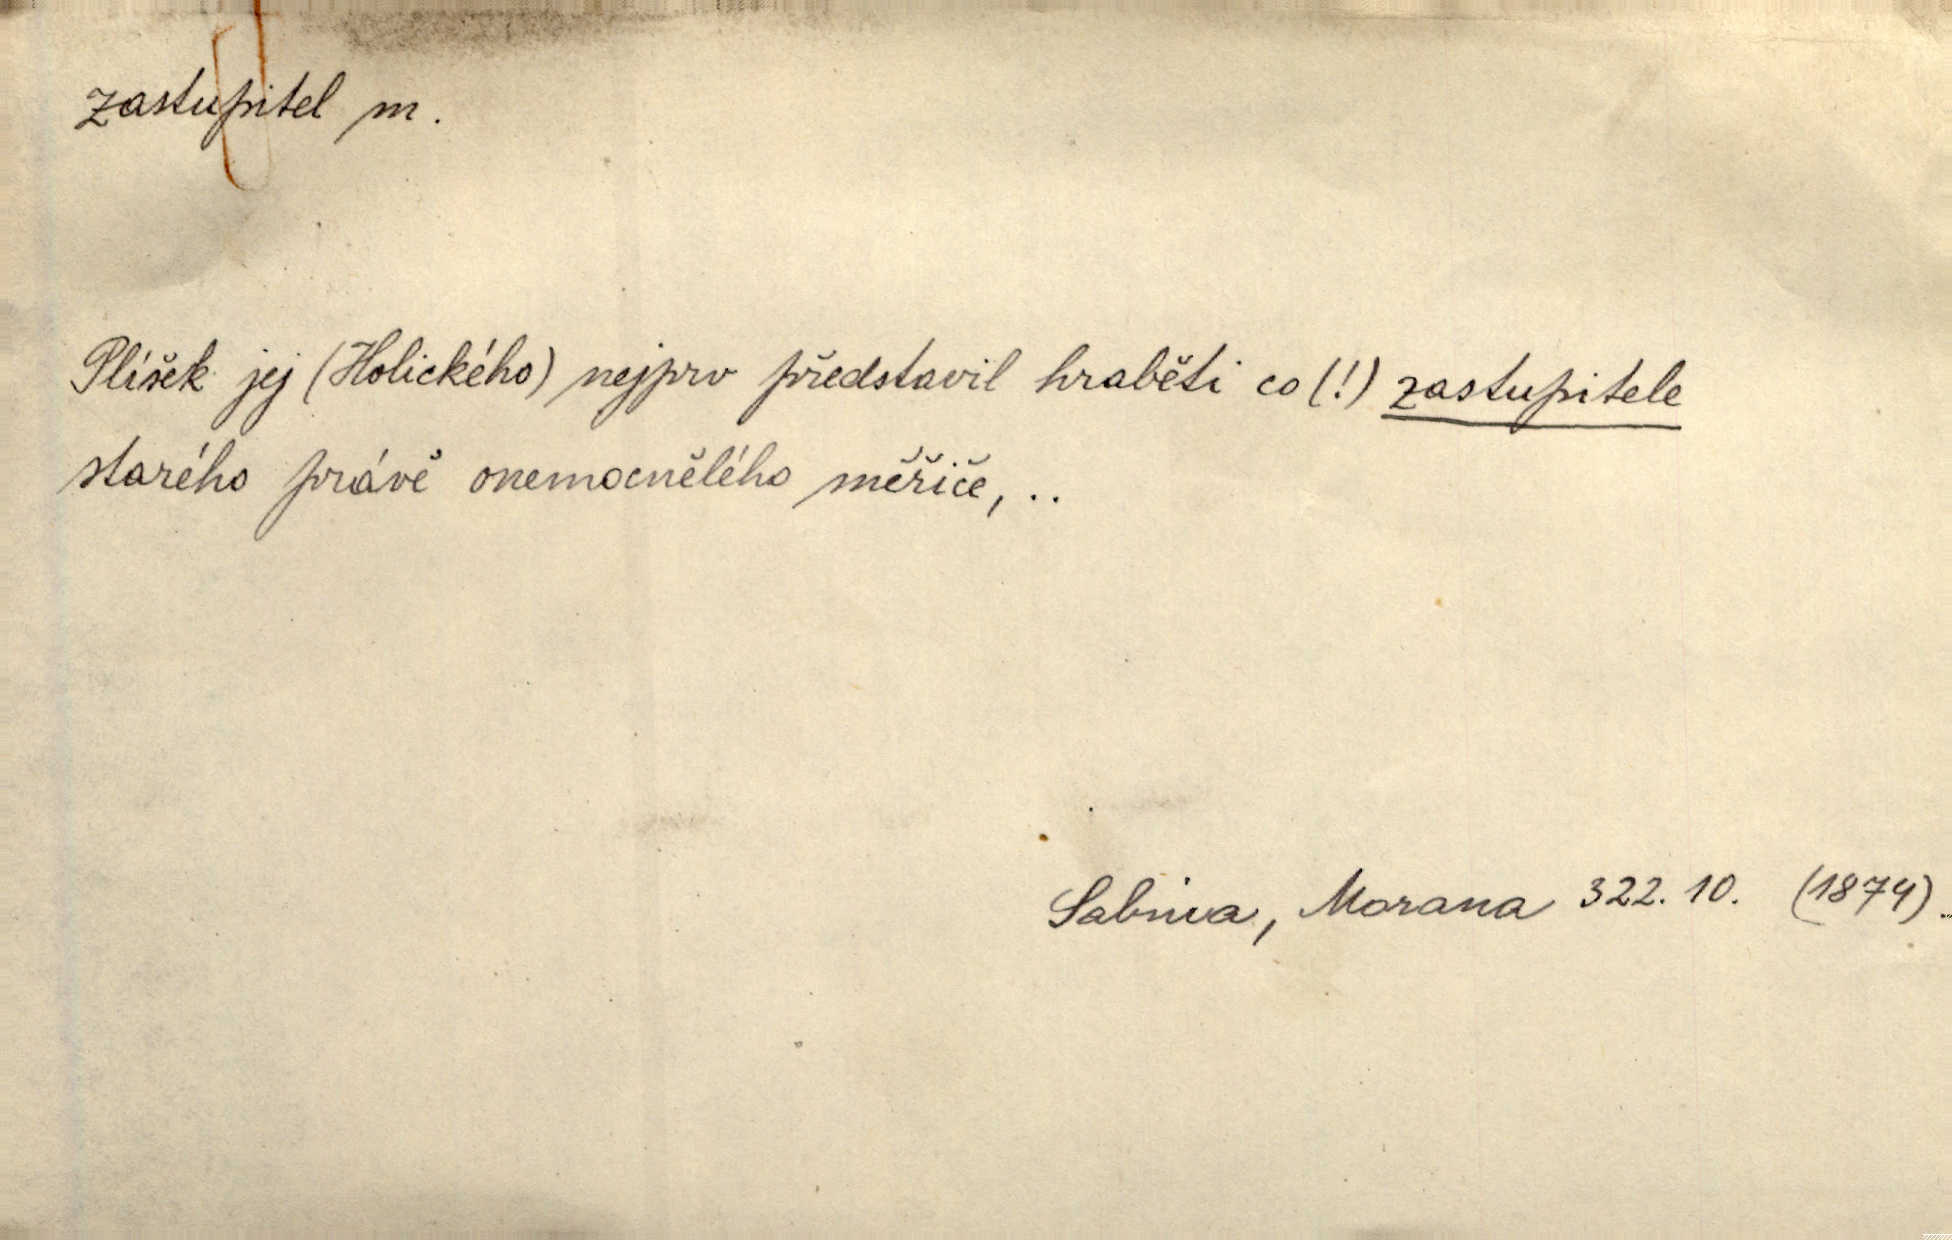 zastupitel m.
Plíšek jej (Holického) nejprv představil hraběti co (!) zastupitele
starého právě onemocnělého měřiče, ..
Sabina, Morana 322. 10. (1874)